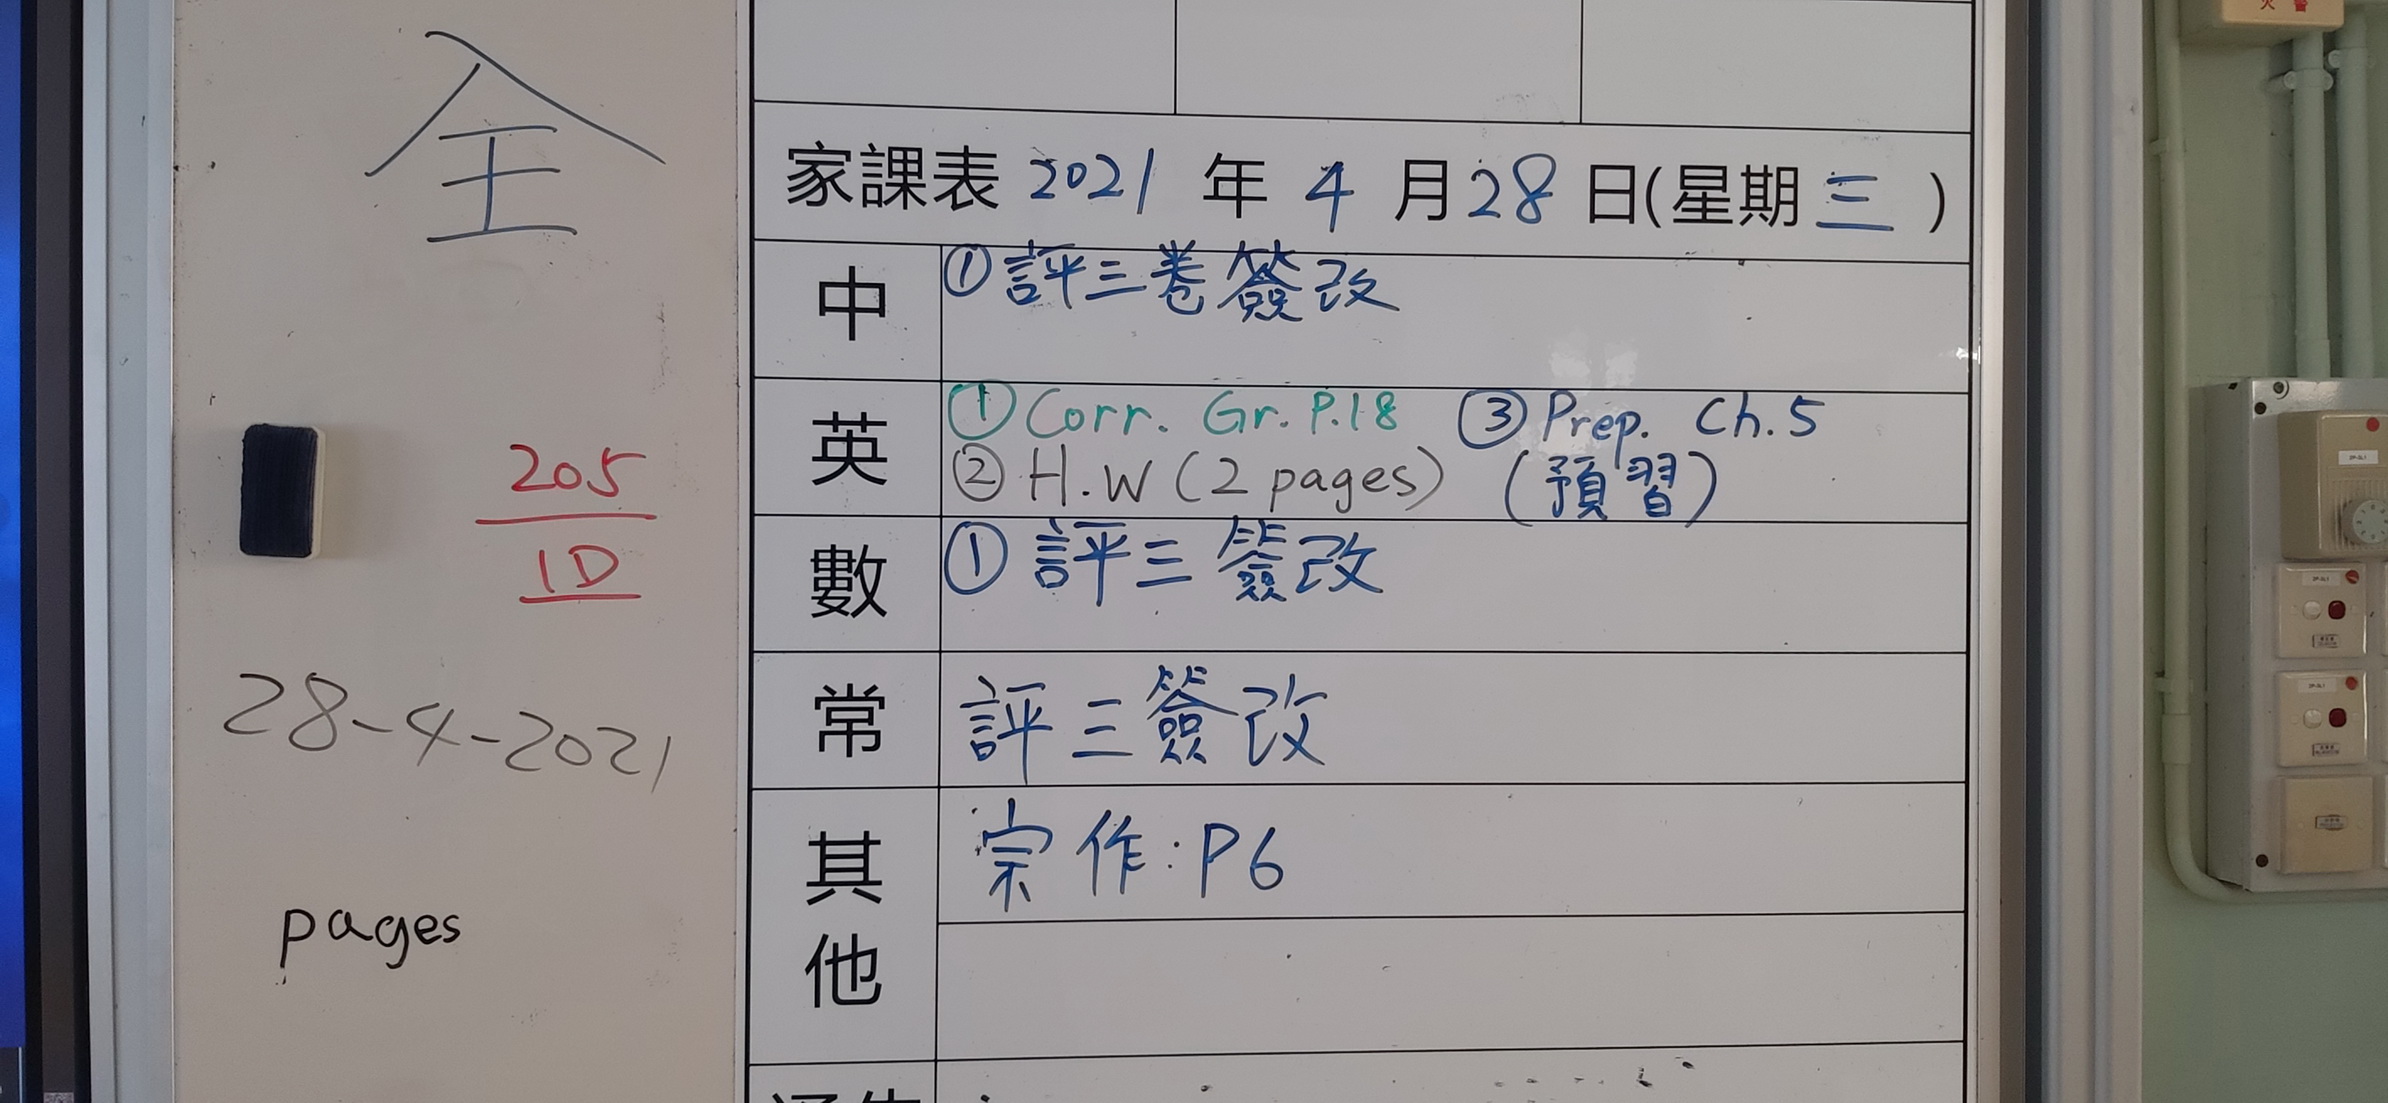 全
205
1D
28-4-2021
pages
家課表 2021 年 4 月 28 日(星期 三 )
中 ①評三卷簽改
英 ①Corr. Gr. P.18 ③Prep. Ch.5
②H.W (2 pages) (預習)
數 ①評三簽改
常 評三簽改
其他 宗作:P6